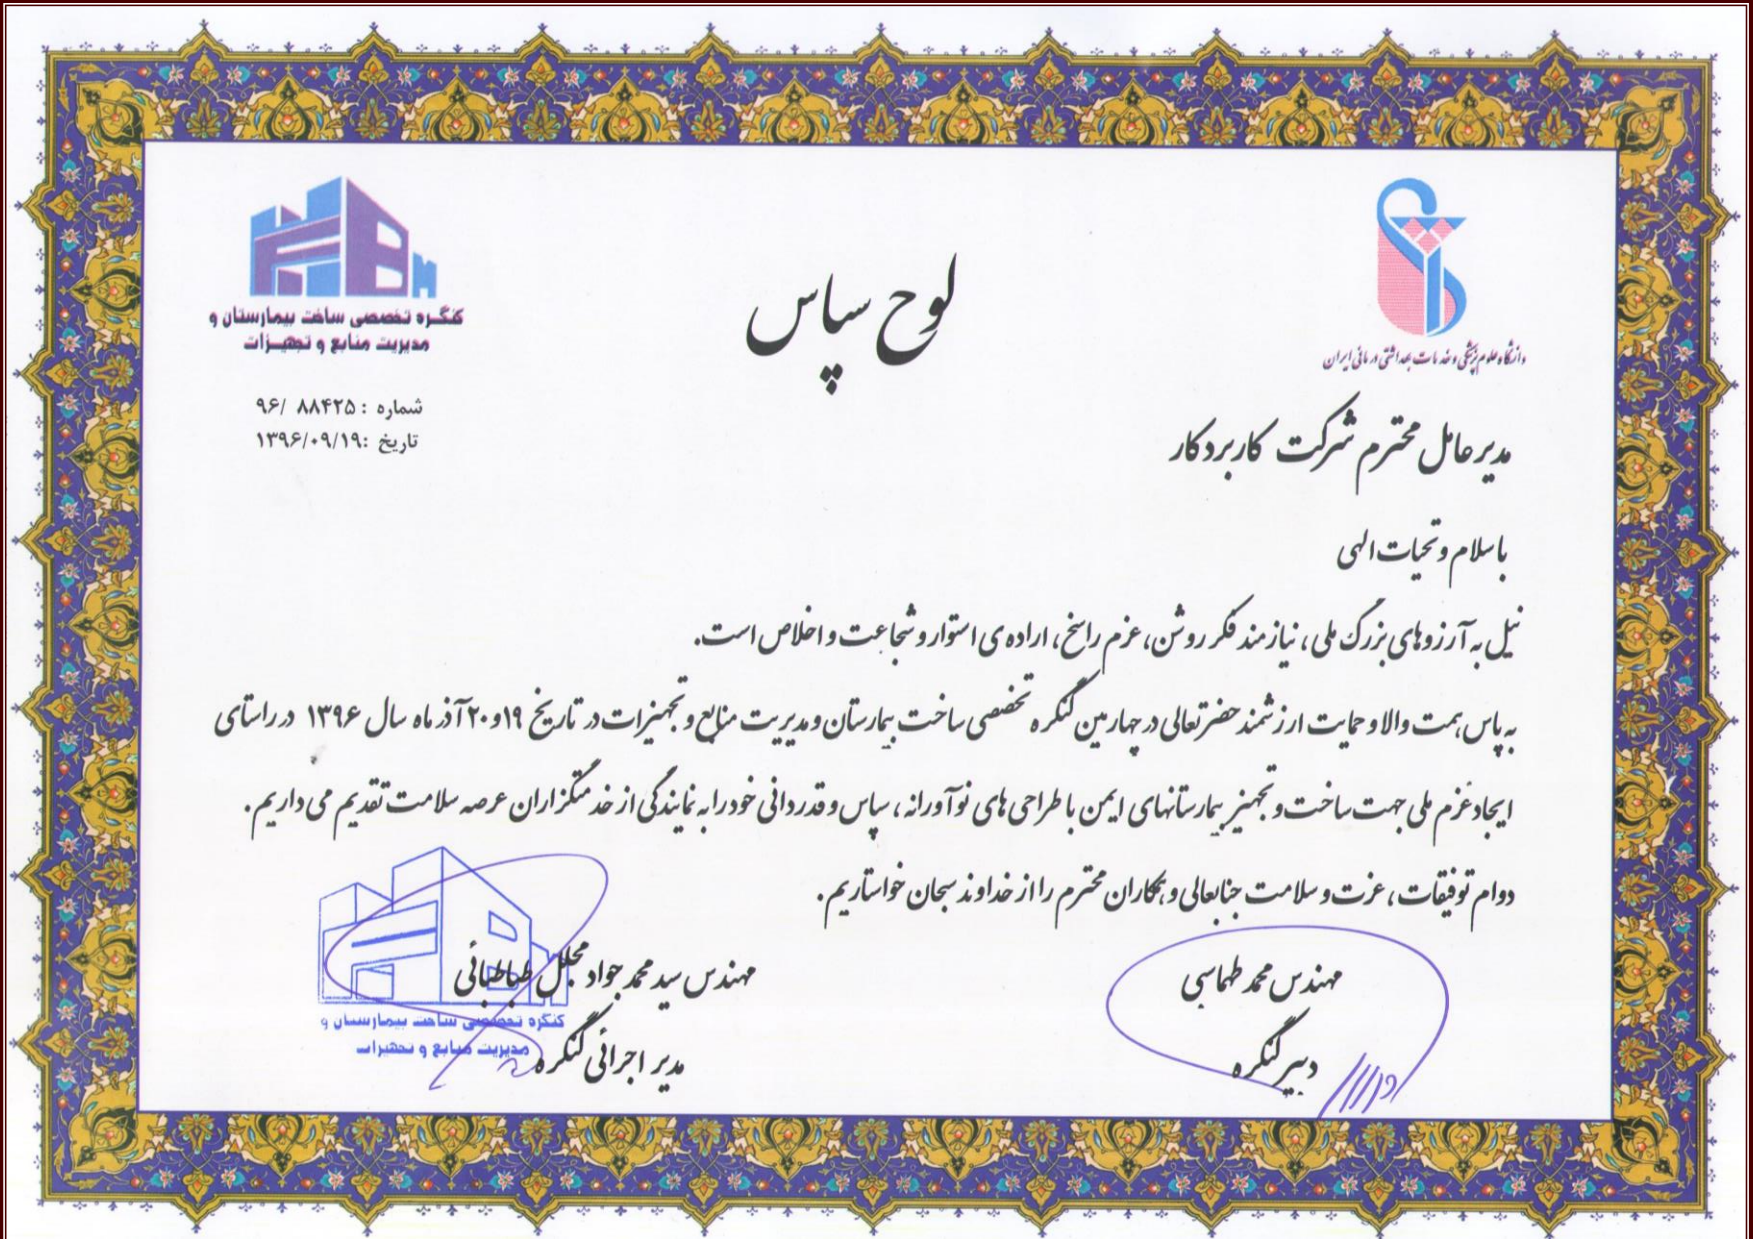 لوح سپاس
دانشگاه علوم پزشکی و خدمات بهداشتی درمانی ایران
کنگره تخصصی ساخت بیمارستان و
مدیریت منابع و تجهیزات
شماره : ۸۸۴۲۵ /۹۶
تاریخ :۱۳۹۶/۰۹/۱۹
مدیرعامل محترم شرکت کاربردکار
باسلام و تحیات الهی
نیل به آرزوهای بزرگ ملی، نیازمند فکر روشن، عزم راسخ، اراده ی استوار و شجاعت و اخلاص است.
به پاس همت والا و حمایت ارزشمند حضرتعالی در چهارمین کنگره تخصصی ساخت بیمارستان و مدیریت منابع و تجهیزات در تاریخ ۱۹و۲۰ آذرماه سال ۱۳۹۶ در راستای
ایجاد عزم ملی جهت ساخت و تجهیز بیمارستانهای ایمن با طراحی های نوآورانه، سپاس و قدردانی خود را به نمایندگی از خدمتگزاران عرصه سلامت تقدیم می داریم.
دوام توفیقات، عزت و سلامت جنابعالی و همکاران محترم را از خداوند سبحان خواستاریم.
مهندس محمد طهماسبی
دبیر کنگره
مهندس سید محمد جواد مجلل طباطبائی
مدیر اجرائی کنگره
کنگره تخصصی ساخت بیمارستان و
مدیریت منابع و تجهیزات